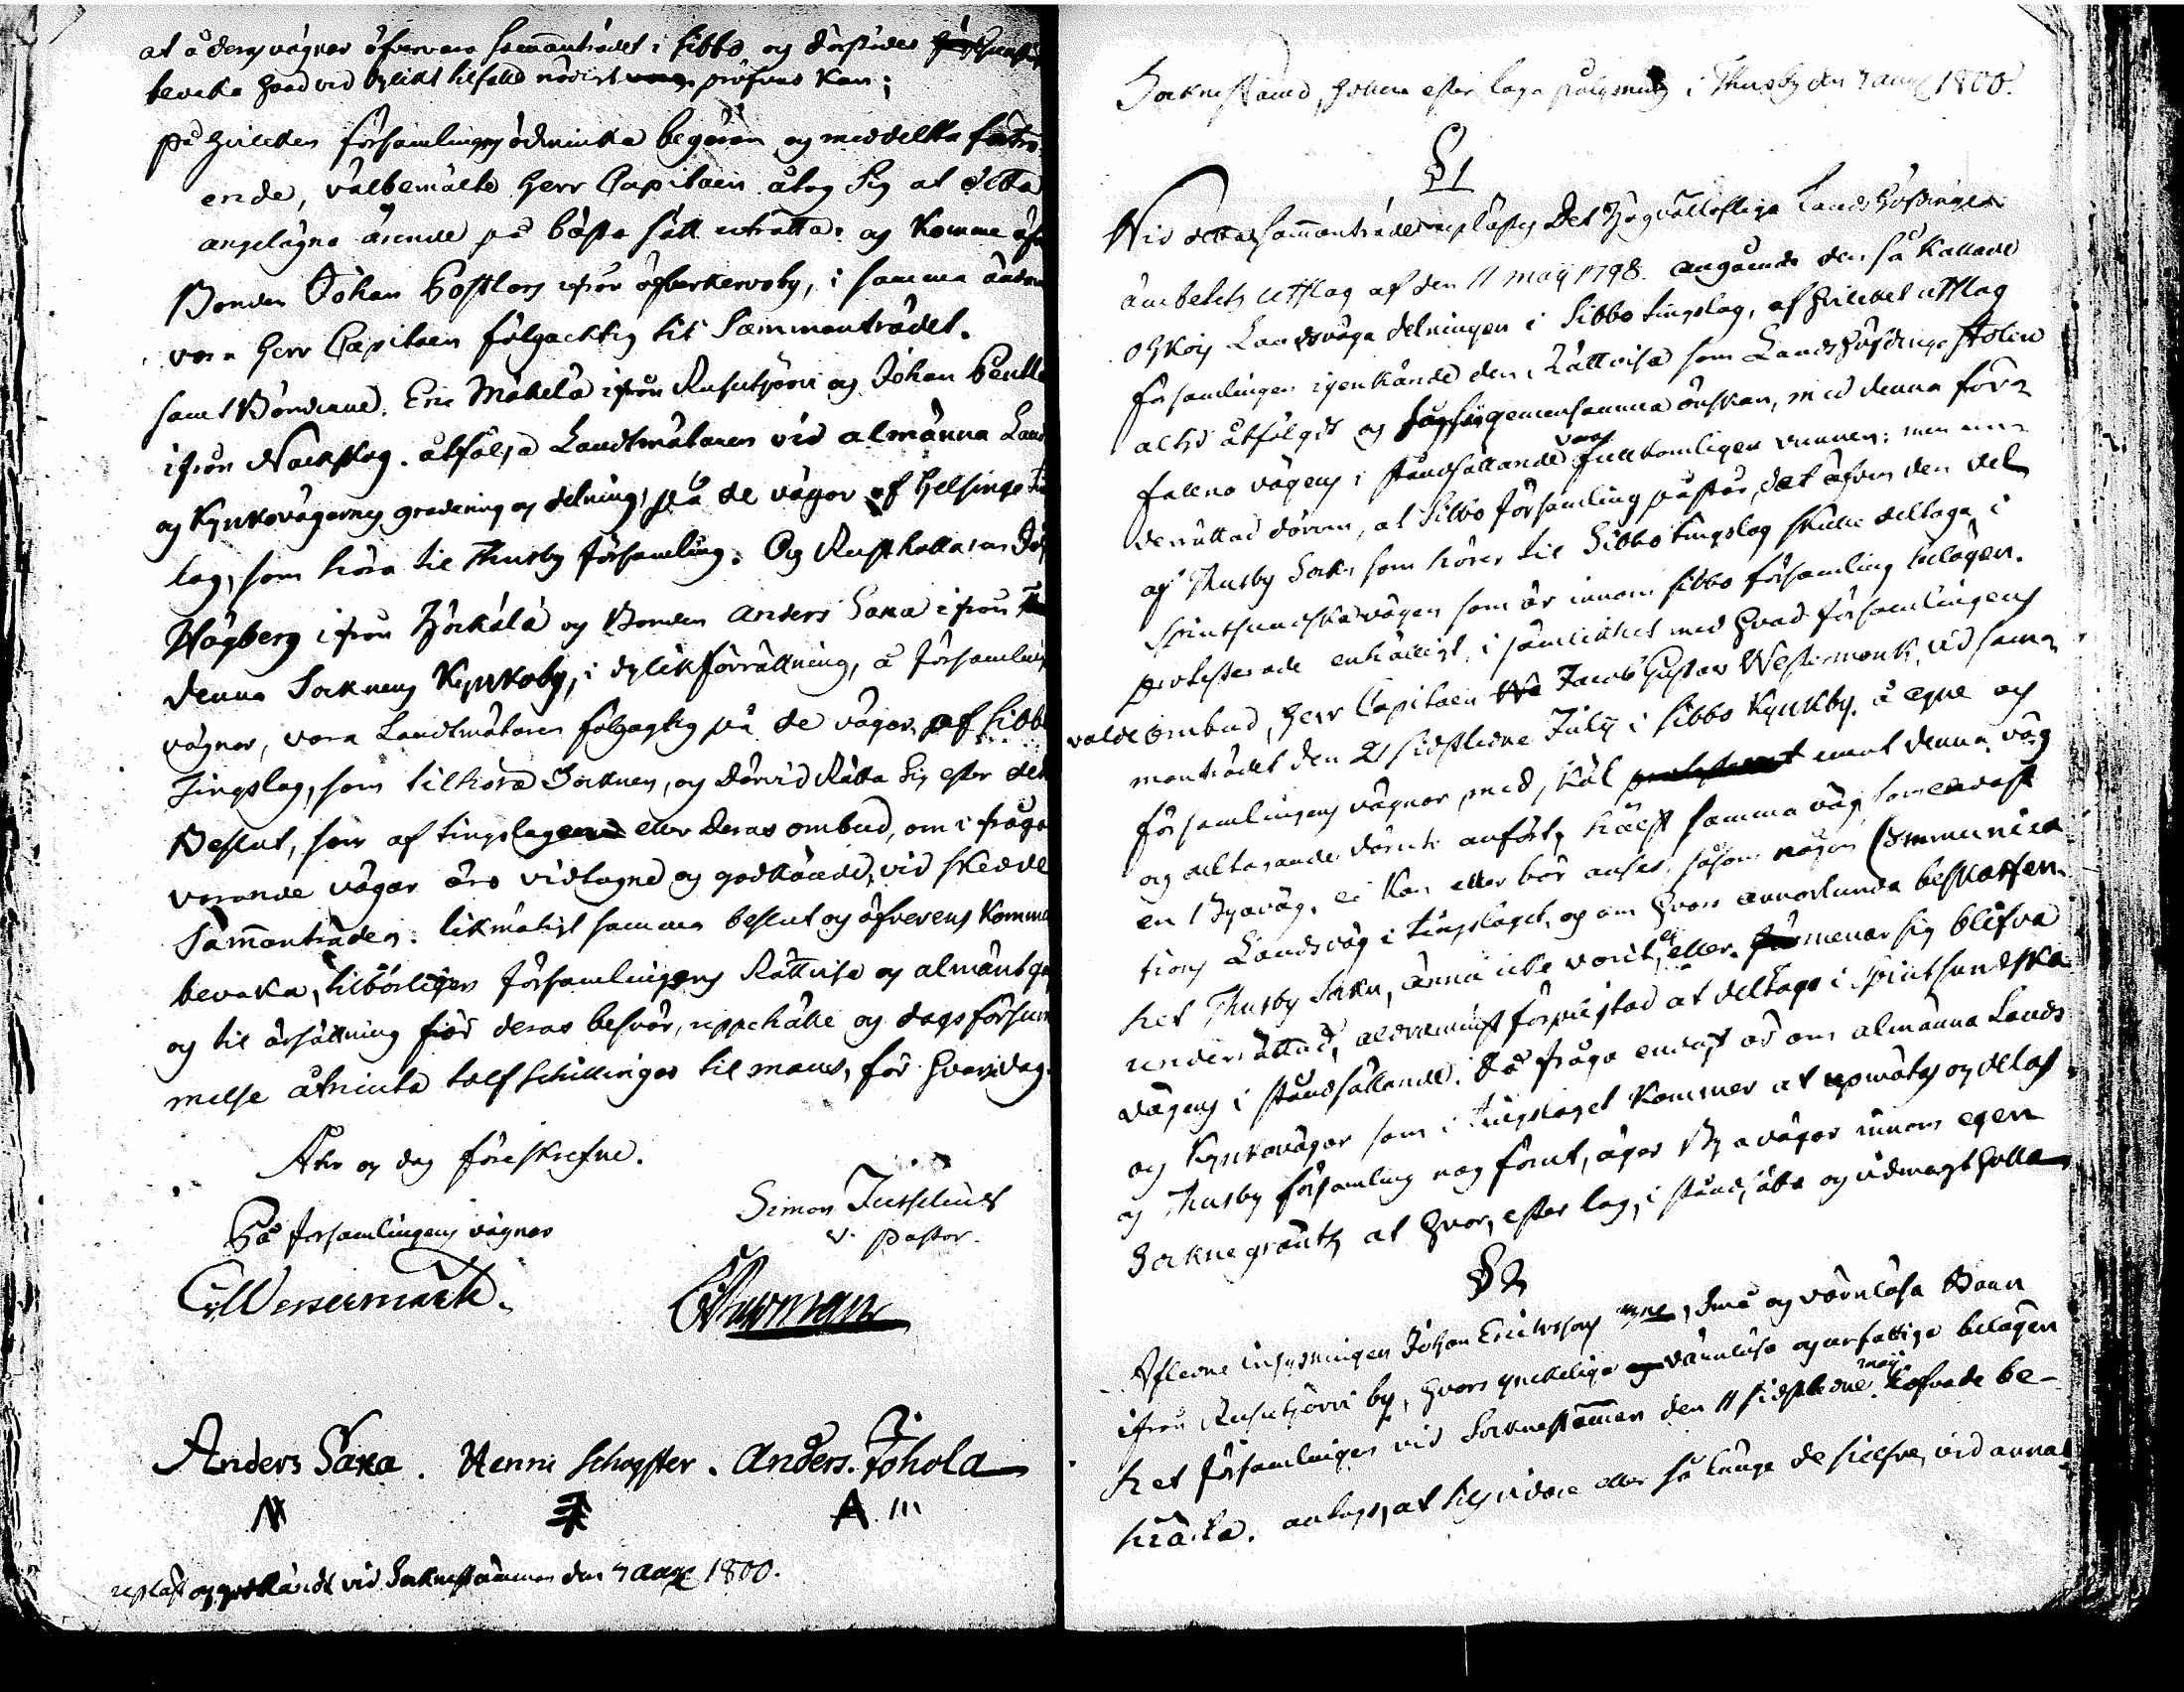 at å deras vägnar öfvervara Sammanträdet i Sibbo og därstädes
bevaka hvad vid dylikt tilfälle nödigt pröfvas kan;
på hvilken församlingens ödmiuka begäran og meddelta förtro-
ende, välbemälte Herr Capitain åtog Sig at detta
angelägna ärende på bästa sätt uträtta: og komme
Bonden Johan ifrån öfverkervoby, i samma
vara Herr Capitain fölgacktig til Sammanträdet.
samt Bönderne. Eric Mäkelä ifrån Rusutjärvi og Johan
ifrån Nackskog. åtfölja Landtmätaren vid almänna
og Kyrkovägarnes gradering og delning, på de vägar af Helsinge
lag, som höra til Thusby församling. Og Rusthållaren
Högberg ifrån Hjäkälä og Bonden Anders Saxa ifrån
denna Sockneng Kyrkoby, i dylik förrättning, å församlings
vägnar, vara Landtmätaren fölgagtig på de vägar, af Sibbo
Tingslag, som tilhöra Soknen, og därvid Rätta Sig efter det
Beslut, som af tingslagen eller deras ombud, om i fråga
varande vägar äro vidtagne og godkände, vid skedde
Sammanträden. likmätigt samma beslut og öfverens komme
bevaka, tilbörligen församlingens Rättvisa og almänt
og til ärsättning för deras besvär, uppehälle og dagsförsum
melse åtniuta tolf schillingar til mans, för hvar dag.
Åhr og dag föreskrefne.
På församlingens vägnar
Simon
v. Pastor.
G Westermarck.
Anders Saxa. Henric Schogster. Anders Johola
A III
upläst og godkändt vid Soknestämman den 7 Aug 1800.
Soknestämd, hållen efter laga pålysning i Thusby den 7 aug 1800.
§ 1
Vid detta Sammanträde uplästes Det Högvällofliga Landshöfdinge
ämbetets Utslag af den 11 maij 1798. angående den så kallade
Landsväga delningen i Sibbo tingslag, af hvilket utslag
församlingen igenkände den Rättvisa som Landshöfdinge stolen
altid åtfölgdt og gemensamma önskan, med denna före-
fallna vägens i ståndsättande vara fullkomligen vunnen; men un-
derrättad därom, at Sibbo församling påstår, det äfven den del
af Thusby Sokn som hörer til Sibbo tingslag skulle deltaga i
Spintsundska vägen som är innom Sibbo församling belägen.
protesterade enhälligt, i jämlikhet med hvad församlingens
valde ombud, Herr Capitain Jacob Gustav Westermarck, vid sam-
manträdet den 21 sidstledne July i Sibbo Kyrkby. å egne og
församlingens vägnar, med skäl emot denna väg
og deltagande däruti anfört, hälst samma väg, som endast
en Byaväg, ei kan eller bör anses, såsom någon Communica
tions Landsväg i tingslaget, og om hvars annorlunda beskaffen-
het Thusby Sokn, ännu icke varit, eller menar sig blifva
underrättad, aldraminst förpligtad at deltaga i Spintsundska
vägens i ståndsättande. Då fråga endast är om almänna Lands
og Kyrkovägar som i tingslaget kommer at upmätas og delas
og Thusby församling nog förut, äger Byavägar innom egen
Soknegränts, at hvar, efter lag, i ståndsätta og vidmagthålla
§ 2
Aflidne inhysningen Johan Ericssons små og värnlösa Barn
ifrån Rusutjärvi by, hvars ynckeliga värnlösa og utfattiga belägen
het församlingen vid Soknestämman den 11 sidstledne maij täfvade be-
hiärta. antogs, at tilsvidare eller så länge de sielfve, vid annat